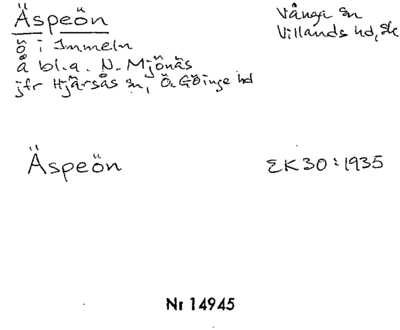 Äspeön
Vånga sn
Villands hd, Sk
ö i Immeln
å bl.a. N. Mjönäs
jfr Hjärsås sn, Ö. Göinge hd
Äspeön
EK 30:1935
Nr 14945